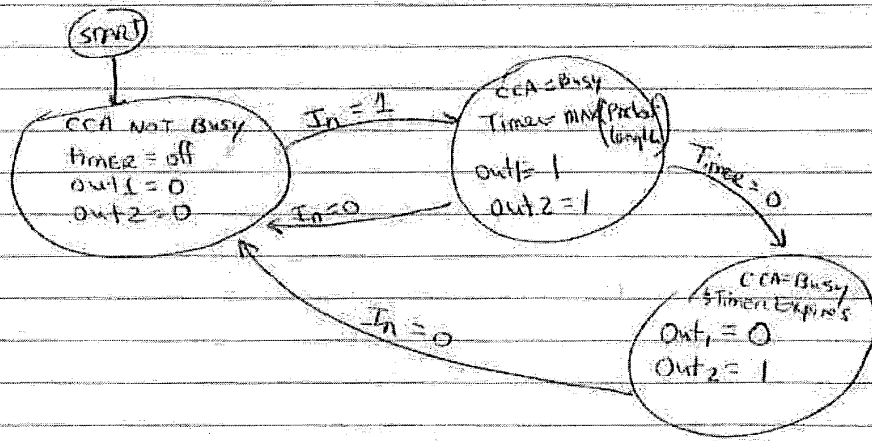 START
CCA NOT Busy
timer = off
out1 = 0
out2 = 0
In = 1
CCA = Busy
Timer = MAX (Packet
Length)
out1 = 1
out2 = 1
In = 0
Timer = 0
CCA = Busy
& Timer Expires
Out1 = 0
Out2 = 1
In = 0